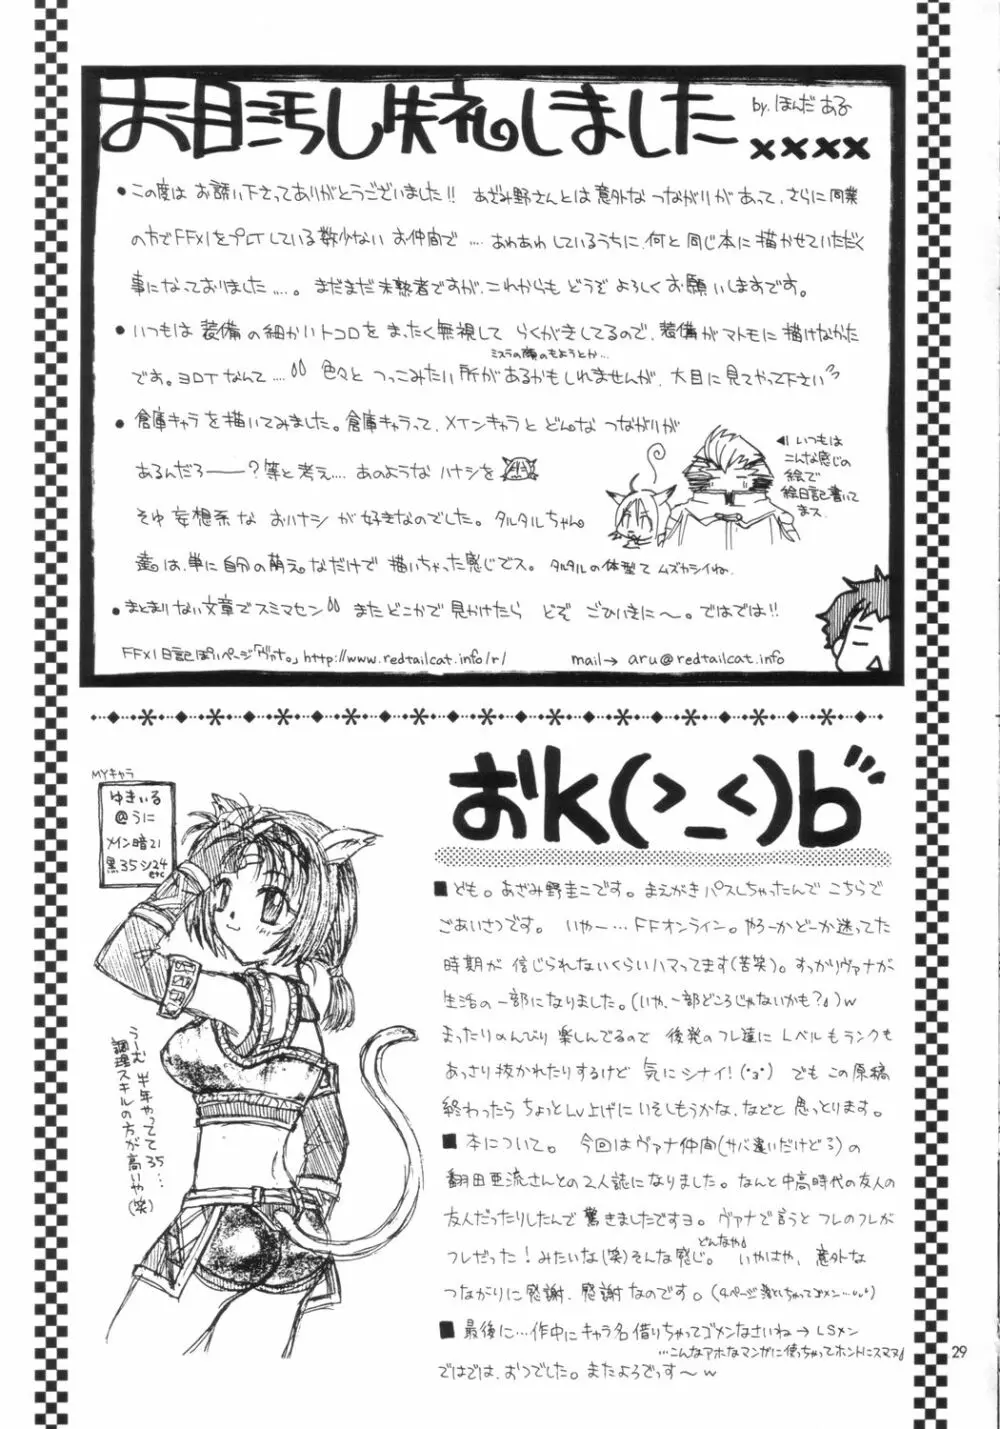 お目汚し失礼しました
by. ほんだ ある
××××
●この度は お誘い下さってありがとうございました!! あざみ野さんとは意外な つながりが あって、さらに同業
の方でFFXIをプレイしている数少ない お仲間で‥‥あわあわしているうちに、何と同じ本に描かせていただく
事になっておりました‥‥。まだまだ未熟者ですが、これからも どうぞ よろしく お願いしますです。
●いつもは 装備の細かいトコロを まったく無視して らくがきしてるので、装備がマトモに描けなかった
ミスラの顔のもようとか…
です。ヨロイなんて‥‥ 色々と つっこみたい所があるかもしれませんが、大目に見てやって下さい
●倉庫キャラを描いてみました。倉庫キャラって、メインキャラと どんな つながりが
あるんだろ――? 等と考え‥‥あのような ハナシを
そゆ 妄想系な おハナシ が好きなのでした。タルタルちゃん
達は、単に自分の萌え。なだけで 描いちゃった感じでス。タルタルの体型て ムズカシイね。
◀いつもは
こんな感じの
絵で
絵日記書いて
まス
●まとまりない文章でスミマセン またどこかで 見かけたら どぞ ごひいきに〜。ではでは!!
FFXI 日記ぽいページ「ヴァナ。」http://www.redtailcat.info/r/ mail→ aru@redtailcat.info
おk(>_<)b
MYキャラ
ゆきいる
@うに
メイン暗21
黒35シ24
etc
うーむ 半年やってて35…
調理スキルの方が高いや(笑)
■ども。あざみ野圭二です。まえがきパスしちゃったんで こちらで
ごあいさつです。 いやー…FFオンライン。やろーかどーか迷ってた
時期が 信じられないくらいハマってます(苦笑)。すっかりヴァナが
生活の一部になりました。(いや、一部どころじゃないかも?♪)w
まったりのんびり 楽しんでるので 後発のフレ達に Lベルもランクも
あっさり抜かれたりするけど 気にシナイ!(・3・) でも この原稿
終わったら ちょっとLv上げに いそしもうかな、などと 思っとります。
■本について。 今回はヴァナ仲間(サバ違いだけどろ)の
翻田亜流さんとの2人誌になりました。なんと中高時代の友人の
友人だったりしたんで 驚きましたですヨ。ヴァナで言うと フレのフレが
どんなや♪
フレだった!みたいな(笑)そんな感じ。 いやはや、意外な
つながりに感謝、感謝なのです。(4ページ落としちゃってゴメン…)
■最後に…作中にキャラ名 借りちゃってゴメンなさいね→LSメン
…こんなアホなマンガに使っちゃってホントにスマヌ♪
ではでは、おつでした。またよろでっす〜w
29